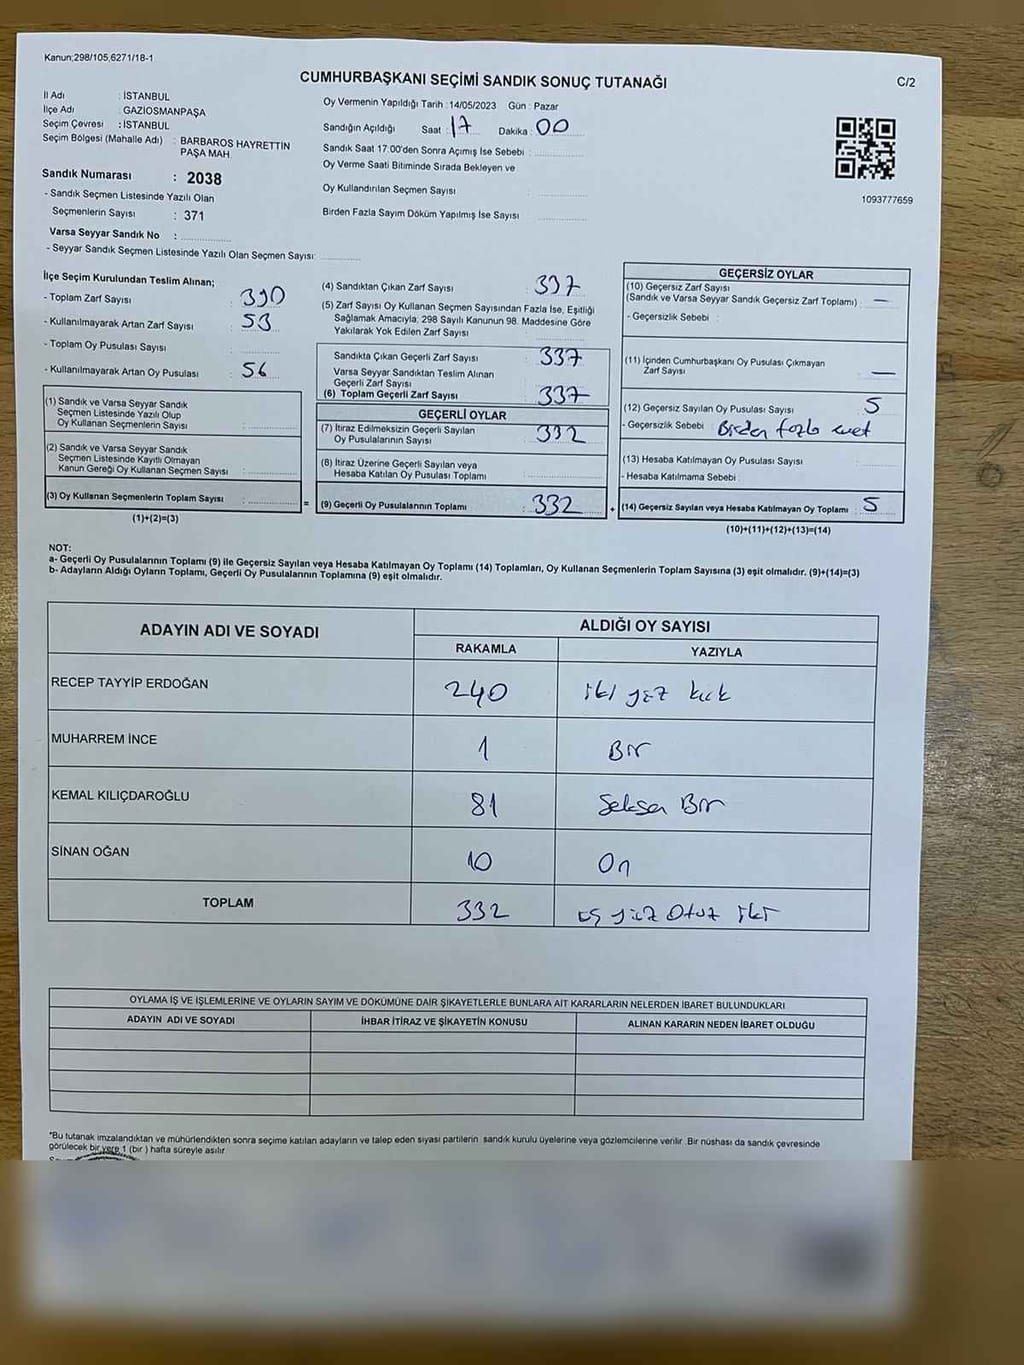 Kanun;298/105;6271/18-1
CUMHURBAŞKANI SEÇİMİ SANDIK SONUÇ TUTANAĞI
C/2
İl Adı : İSTANBUL
İlçe Adı : GAZİOSMANPAŞA
Seçim Çevresi : İSTANBUL
Seçim Bölgesi (Mahalle Adı) : BARBAROS HAYRETTİN
PAŞA MAH.
Sandık Numarası : 2038
- Sandık Seçmen Listesinde Yazılı Olan
Seçmenlerin Sayısı : 371
Varsa Seyyar Sandık No :
- Seyyar Sandık Seçmen Listesinde Yazılı Olan Seçmen Sayısı:
Oy Vermenin Yapıldığı Tarih : 14/05/2023 Gün : Pazar
Sandığın Açıldığı Saat : 17 Dakika : 00
Sandık Saat 17:00'den Sonra Açımış İse Sebebi :
Oy Verme Saati Bitiminde Sırada Bekleyen ve
Oy Kullandırılan Seçmen Sayısı :
Birden Fazla Sayım Döküm Yapılmış İse Sayısı :
1093777659
İlçe Seçim Kurulundan Teslim Alınan;
- Toplam Zarf Sayısı : 390
- Kullanılmayarak Artan Zarf Sayısı : 53
- Toplam Oy Pusulası Sayısı :
- Kullanılmayarak Artan Oy Pusulası : 56
(1) Sandık ve Varsa Seyyar Sandık
Seçmen Listesinde Yazılı Olup
Oy Kullanan Seçmenlerin Sayısı :
(2) Sandık ve Varsa Seyyar Sandık
Seçmen Listesinde Kayıtlı Olmayan
Kanun Gereği Oy Kullanan Seçmen Sayısı :
(3) Oy Kullanan Seçmenlerin Toplam Sayısı : =
(1)+(2)=(3)
(4) Sandıktan Çıkan Zarf Sayısı : 337
(5) Zarf Sayısı Oy Kullanan Seçmen Sayısından Fazla İse, Eşitliği
Sağlamak Amacıyla; 298 Sayılı Kanunun 98. Maddesine Göre
Yakılarak Yok Edilen Zarf Sayısı :
Sandıkta Çıkan Geçerli Zarf Sayısı : 337
Varsa Seyyar Sandıktan Teslim Alınan
Geçerli Zarf Sayısı :
(6) Toplam Geçerli Zarf Sayısı : 337
GEÇERLİ OYLAR
(7) İtiraz Edilmeksizin Geçerli Sayılan
Oy Pusulalarının Sayısı : 332
(8) İtiraz Üzerine Geçerli Sayılan veya
Hesaba Katılan Oy Pusulası Toplamı :
(9) Geçerli Oy Pusulalarının Toplamı : 332 +
GEÇERSİZ OYLAR
(10) Geçersiz Zarf Sayısı
(Sandık ve Varsa Seyyar Sandık Geçersiz Zarf Toplamı) : —
- Geçersizlik Sebebi :
(11) İçinden Cumhurbaşkanı Oy Pusulası Çıkmayan
Zarf Sayısı : —
(12) Geçersiz Sayılan Oy Pusulası Sayısı : 5
- Geçersizlik Sebebi : Birden fazla evet
(13) Hesaba Katılmayan Oy Pusulası Sayısı :
- Hesaba Katılmama Sebebi :
(14) Geçersiz Sayılan veya Hesaba Katılmayan Oy Toplamı : 5
(10)+(11)+(12)+(13)=(14)
NOT:
a- Geçerli Oy Pusulalarının Toplamı (9) ile Geçersiz Sayılan veya Hesaba Katılmayan Oy Toplamı (14) Toplamları, Oy Kullanan Seçmenlerin Toplam Sayısına (3) eşit olmalıdır. (9)+(14)=(3)
b- Adayların Aldığı Oyların Toplamı, Geçerli Oy Pusulalarının Toplamına (9) eşit olmalıdır.
ADAYIN ADI VE SOYADI
ALDIĞI OY SAYISI
RAKAMLA YAZIYLA
RECEP TAYYİP ERDOĞAN 240 iki yüz kırk
MUHARREM İNCE 1 Bir
KEMAL KILIÇDAROĞLU 81 Seksen Bir
SİNAN OĞAN 10 On
TOPLAM 332 üç yüz Otuz iki
OYLAMA İŞ VE İŞLEMLERİNE VE OYLARIN SAYIM VE DÖKÜMÜNE DAİR ŞİKAYETLERLE BUNLARA AİT KARARLARIN NELERDEN İBARET BULUNDUKLARI
ADAYIN ADI VE SOYADI İHBAR İTİRAZ VE ŞİKAYETİN KONUSU ALINAN KARARIN NEDEN İBARET OLDUĞU
*Bu tutanak imzalandıktan ve mühürlendikten sonra seçime katılan adayların ve talep eden siyasi partilerin sandık kurulu üyelerine veya gözlemcilerine verilir. Bir nüshası da sandık çevresinde
görülecek bir yere 1 (bir ) hafta süreyle asılır.